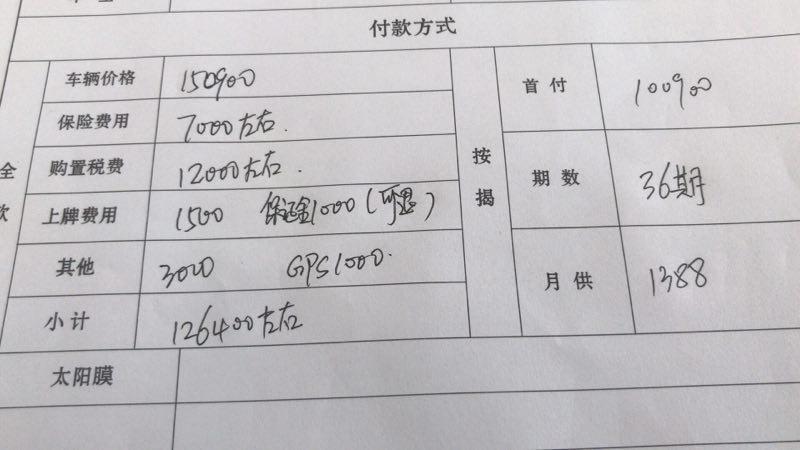 付款方式
全款
车辆价格 150900
保险费用 7000左右.
购置税费 12000左右.
上牌费用 1500 保证金1000(可退)
其他 3000 GPS1000.
小计 126400左右
按揭
首付 100900
期数 36期
月供 1388
太阳膜